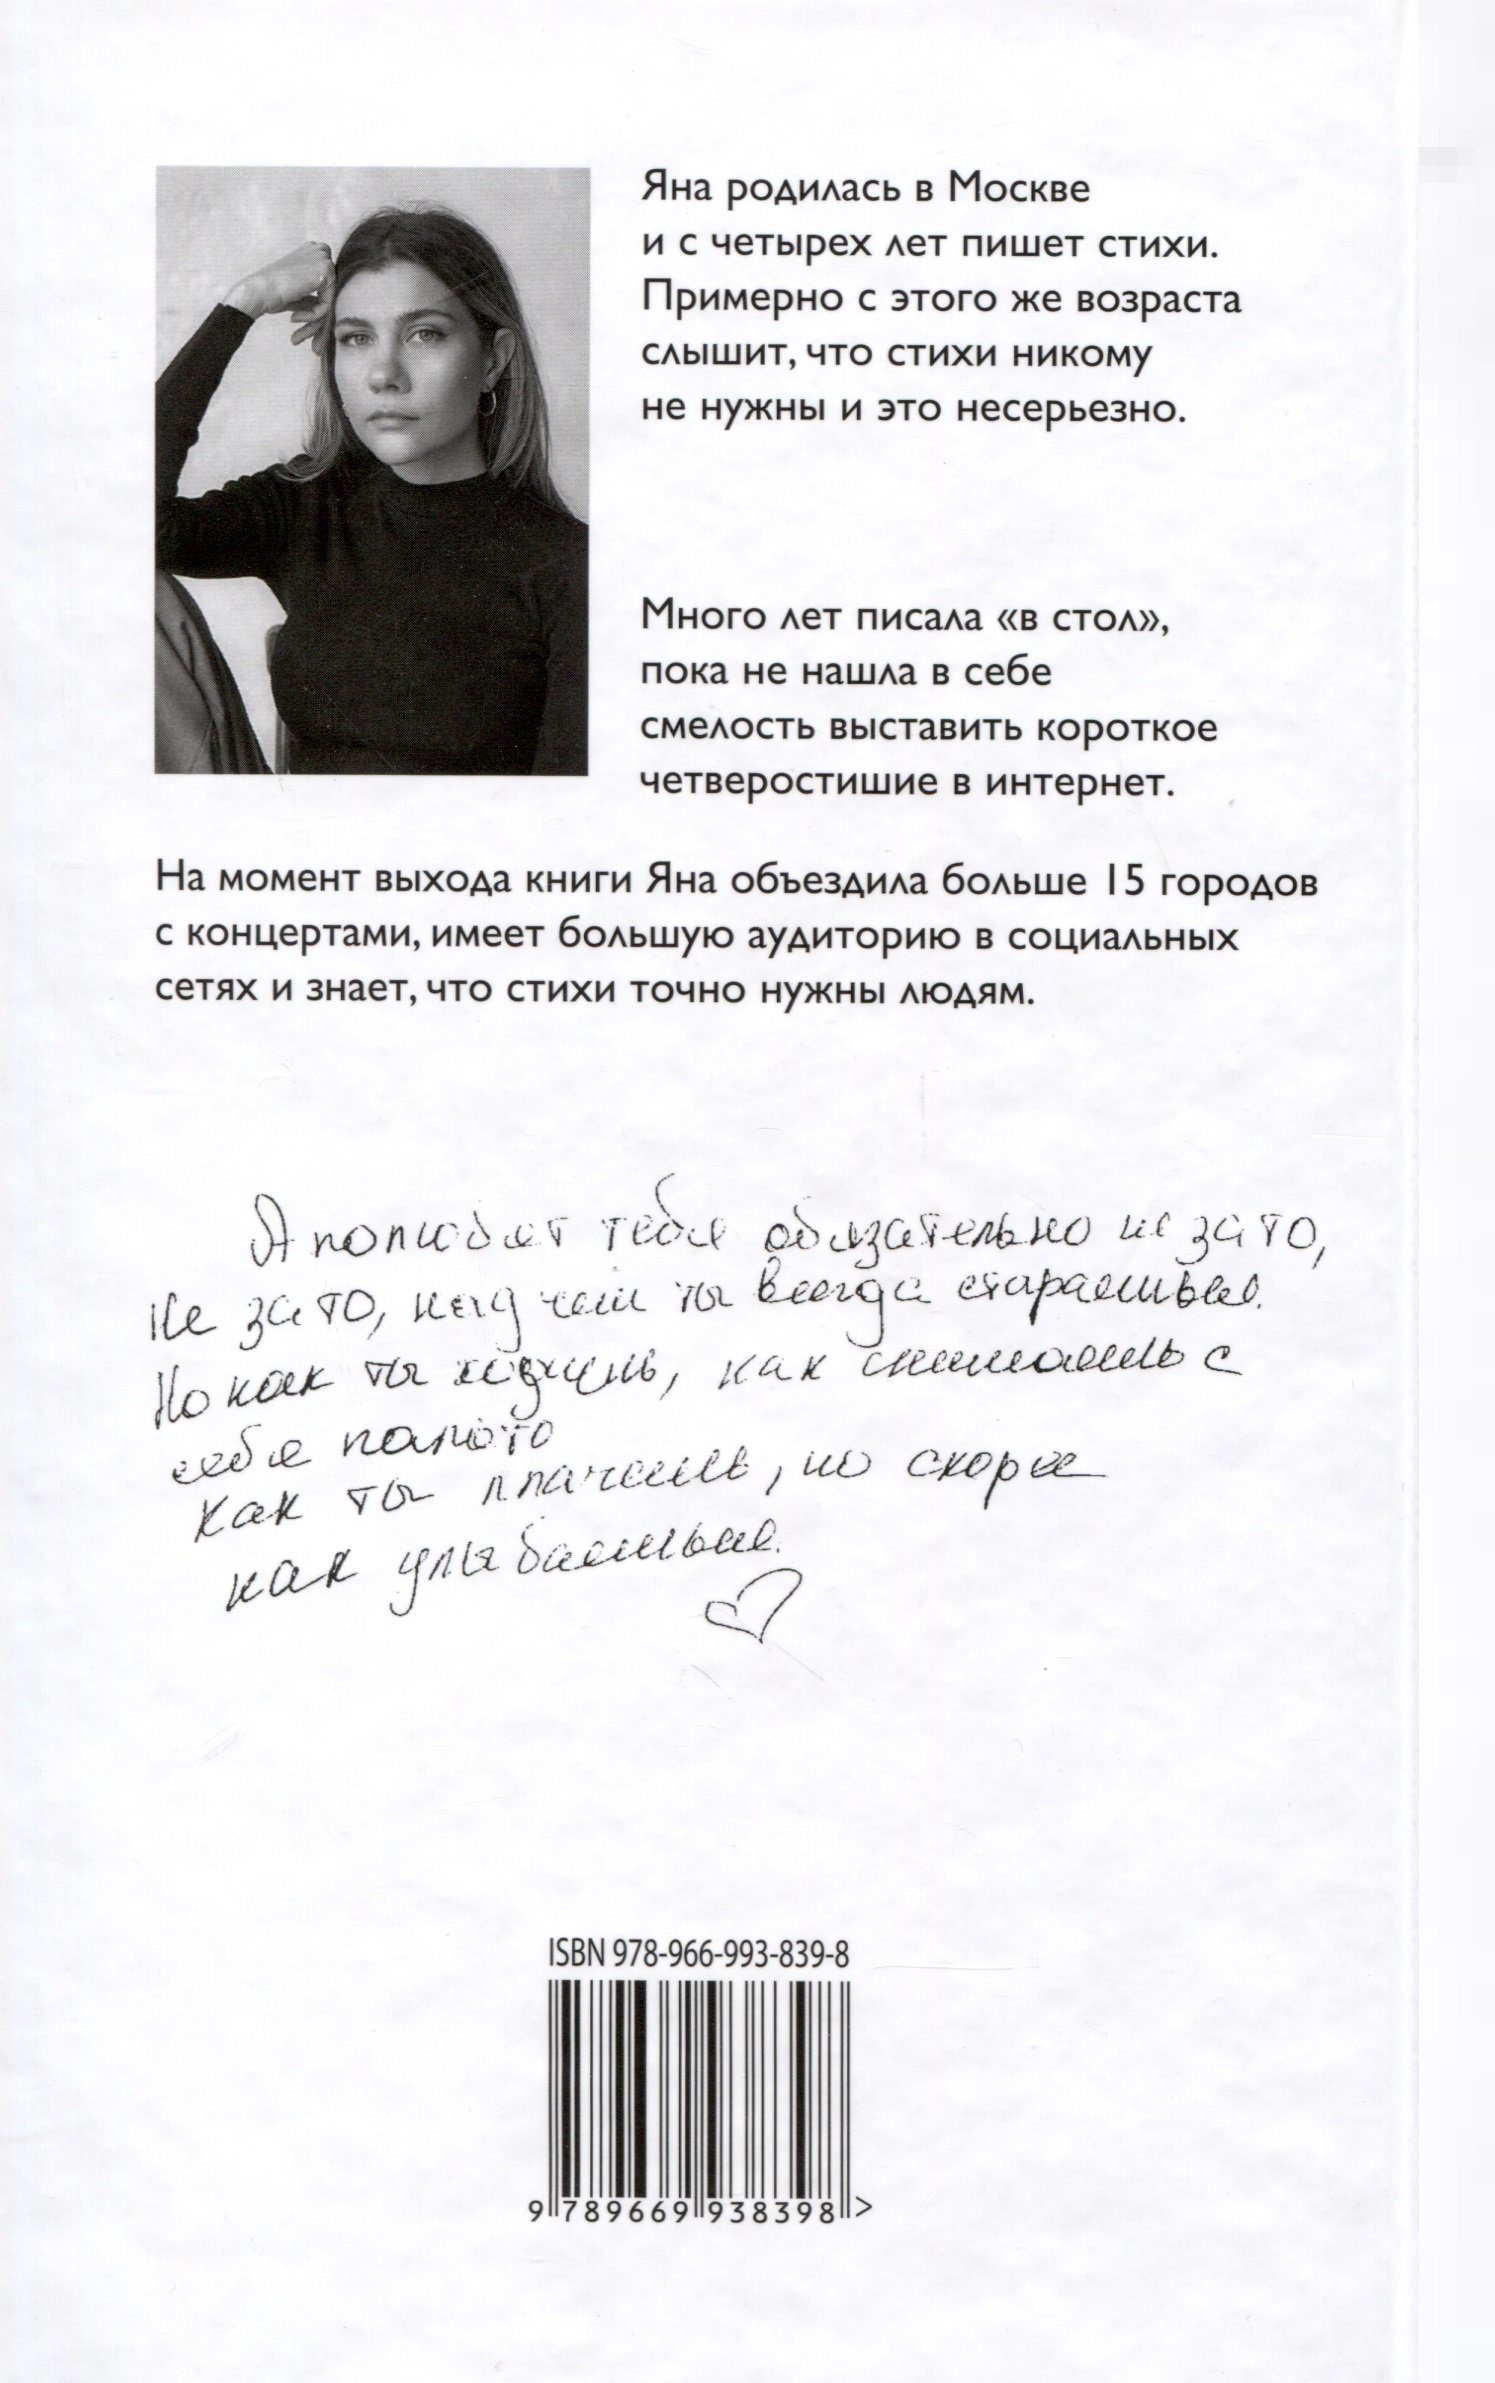 Яна родилась в Москве
и с четырех лет пишет стихи.
Примерно с этого же возраста
слышит, что стихи никому
не нужны и это несерьезно.
Много лет писала «в стол»,
пока не нашла в себе
смелость выставить короткое
четверостишие в интернет.
На момент выхода книги Яна объездила больше 15 городов
с концертами, имеет большую аудиторию в социальных
сетях и знает, что стихи точно нужны людям.
А полюбят тебя обязательно не за то,
Не за то, над чем ты всегда стараешься.
Но как ты ходишь, как снимаешь с
себя пальто
Как ты плачешь, но скорее
как улыбаешься.
ISBN 978-966-993-839-8
9 789669 938398 >